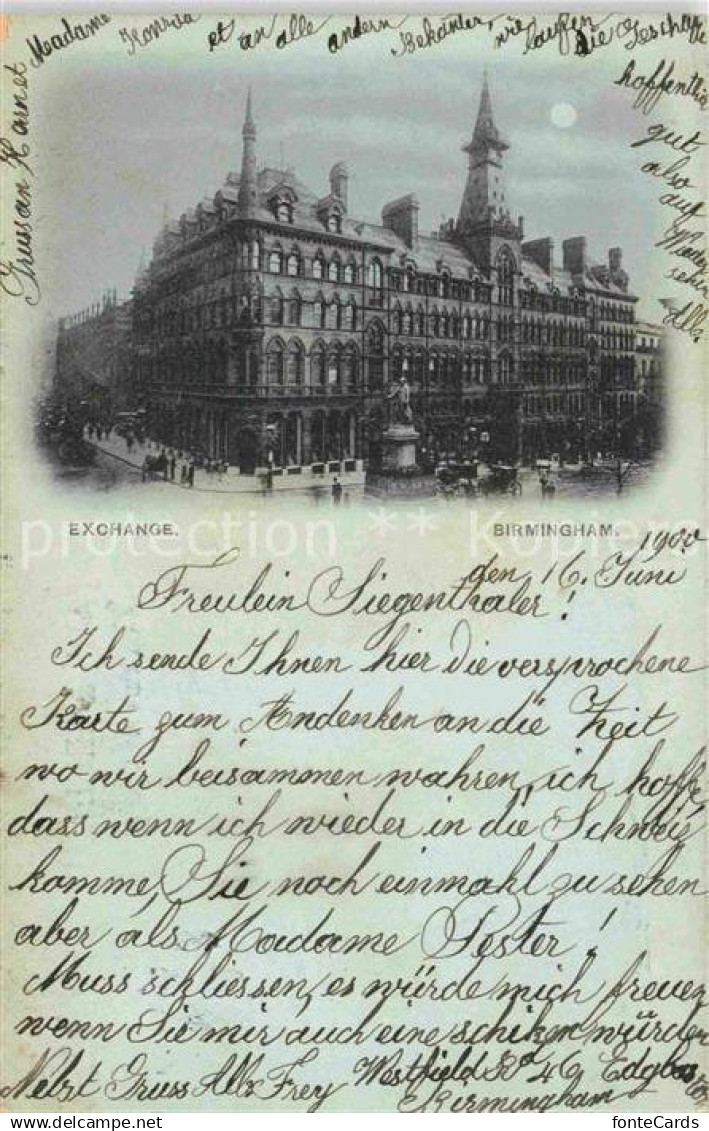 Madame Konrad et an alle andern Bekanter, wie laufen die Geschäfte
hoffentlich
gut
also
auf
Wieder
sehen
Alle
Gruss an Harnet
EXCHANGE.
BIRMINGHAM.
protection ** Kopierschutz
den 16. Juni 1900
Freulein Siegenthaler!
Ich sende Ihnen hier die versprochene
Karte zum Andenken an die Zeit
wo wir beisammen wahren, ich hoffe,
dass wenn ich wieder in die Schweis
komme, Sie noch einmahl zu sehen
aber als Madame Pester!
Muss schliessen, es würde mich freuen
wenn Sie mir auch eine schiken würden
Nebst Gruss Alb Frey Westfield Rd 46 Edgbaston
Birmingham
fonteCards